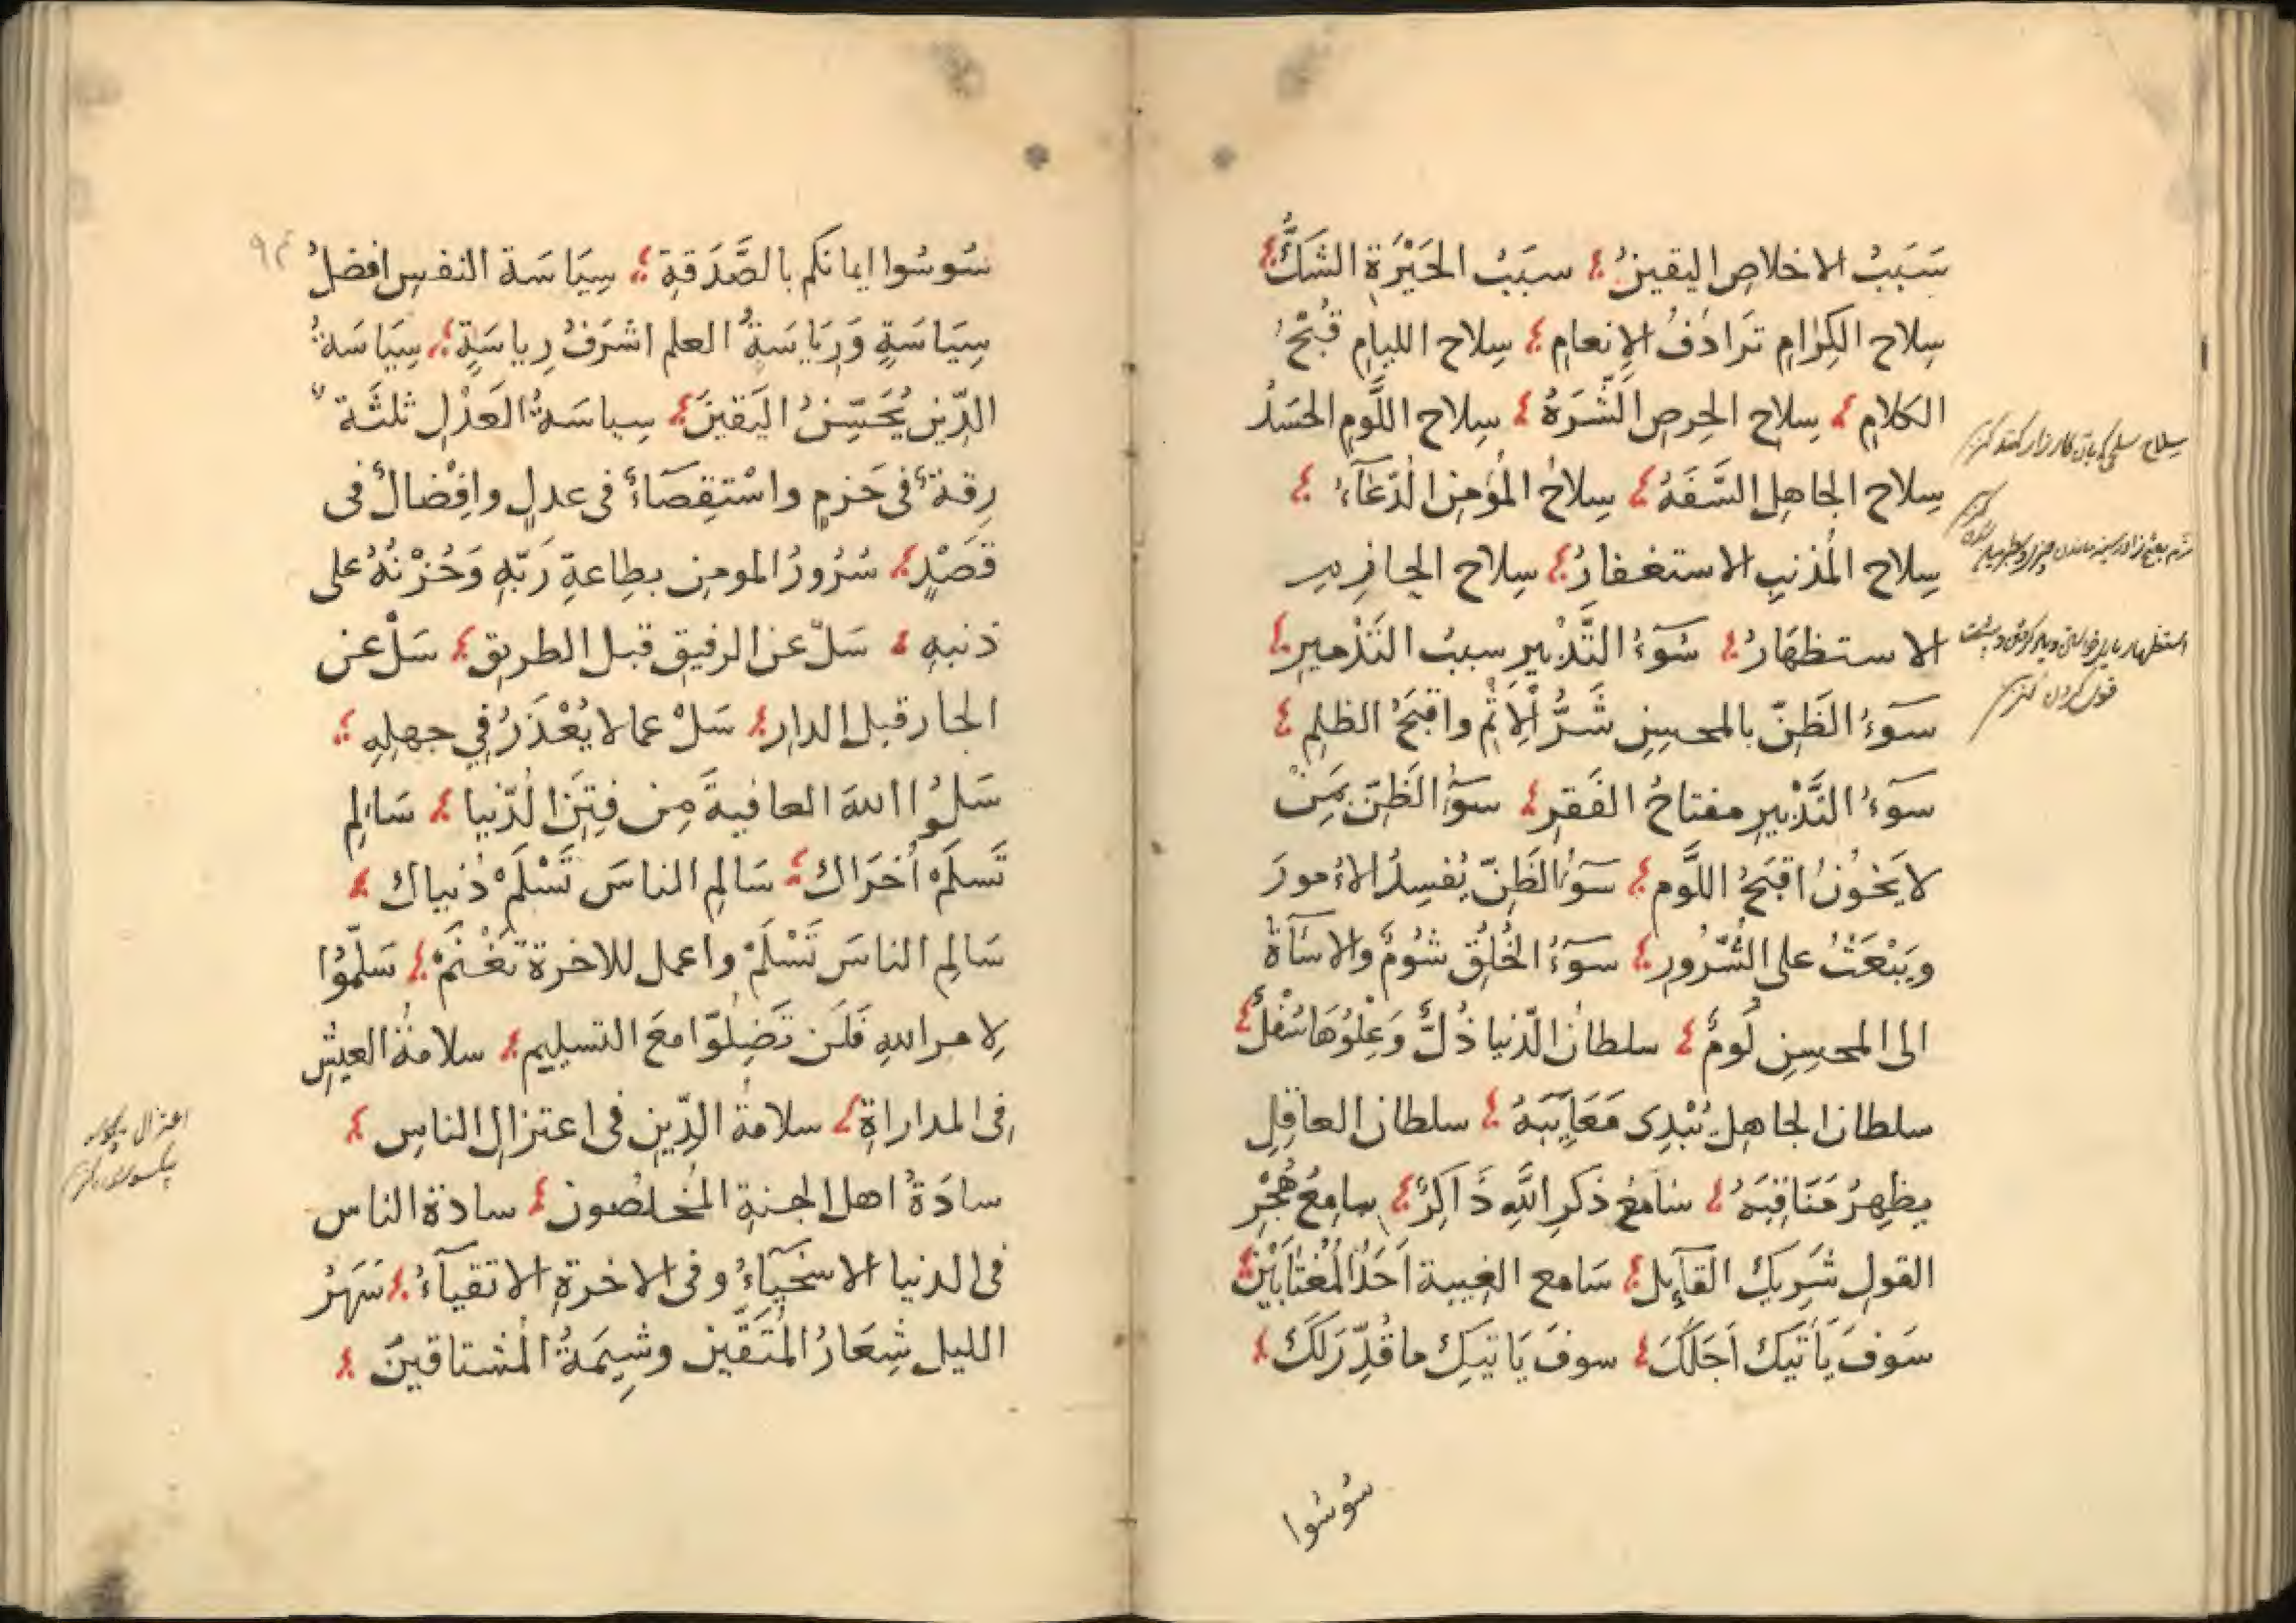 سَبَبُ الاخلاصِ اليقينُ سبَبُ الحَيْرَةِ الشَكُّ
سِلاح الكِرٰامِ تَرادُفُ الإنعامِ سِلاح الليامِ قُبْحُ
الكلامِ سِلاح الحِرصِ الشَّرَهُ سِلاح اللَّومِ الحَسَدُ
سِلاح الجاهلِ السَّفَهُ سِلاحُ المُؤمِنِ الدّعَآءُ
سِلاح المُذنبِ الاستغفارُ سِلاح الحازمِ
الاستظهَارُ سُوٓءُ التَّدْبيرِ سببُ التَدْميرِ
سَوٓءُ الظَنِّ بالمحسِنِ شَرُّ الاِثْمِ واقبَحُ الظلِمِ
سوٓءُ التَّدْبيرِ مفتاحُ الفَقرِ سوٓءُ الظَنِّ بِمَنْ
لا يَخوُنُ اقبَحُ اللَّومِ سوٓءُ الظَنِّ يُفسِدُ الاُمورَ
ويَبْعَثُ على الشُّرُورِ سوٓءُ الخُلُقِ شُومٌ والاسَآءَةُ
الى المحسِنِ لُومٌ سلطانُ الدّنيا ذُلٌّ وَعِلوُهَا سُفْلٌ
سلطان الجاهلِ يُبْدِى مَعَايِبَهُ سلطان العاقِلِ
يظهِرُ مَنَاقِبَهُ سَامعُ ذكرِ اللهِ ذَاكِرٌ سامِعُ هُجْرِ
القولِ شَرِيكُ القآيلِ سَامع الغِيبةِ اَحَدُ المُغْتَابَيْنِ
سَوفَ يَأتيكَ اَجَلُكَ سوفَ يَاتيكَ ما قُدِّرَ لَكَ
سُوسُوا
سلاح
استظهار
سُوسُوا ايمانَكُم بالصَّدَقةِ سِيَاسَة النفسِ افضلُ
سِيَاسَةٍ وَرِيَاسَةُ العلمِ اشرَفُ رِياسَةٍ سِيَاسَةُ
الدّينِ بُحُسْنِ اليَقينِ سياسَةُ العَدْلِ ثلثَة
رِقةٌ فى حَزمٍ واسْتِقصَاءٌ فى عدلٍ وافْضالٌ فى
قَصْدٍ سُرُورُ المومنِ بطِاعةِ رَبّهِ وَحُزْنُهُ على
ذنبهِ سَلْ عن الرفيقِ قبل الطريقِ سَلْ عن
الجارِ قبل الدارِ سَلْ عما لا يُعْذَرُ فِي جهلِهِ
سَلُوا اللهَ العافيةَ مِن فِتَنِ الدّنيا سَالِمِ
تَسلَمْ اُخرَاكَ سَالمِ الناسَ تَسْلَمْ دُنياكَ
سَالمِ الناسَ تَسْلَمْ واعمل للاخرةِ تَغْنَمْ سَلّمُوا
لِامرِ اللهِ فَلَن تَضِلّوا معَ التسليمِ سلامةُ العيشِ
فِى المداراةِ سلامةُ الدِّينِ فى اعتزالِ الناسِ
سادَةُ اهل الجنةِ المُخلصُونَ سادَة الناسِ
فى الدنيا الاسخيآءُ وفى الاخرةِ الاتقيآءُ سَهَرُ
الليلِ شِعَارُ المُتَّقينَ وشِيمَةُ المُشتاقينَ
اعتزال